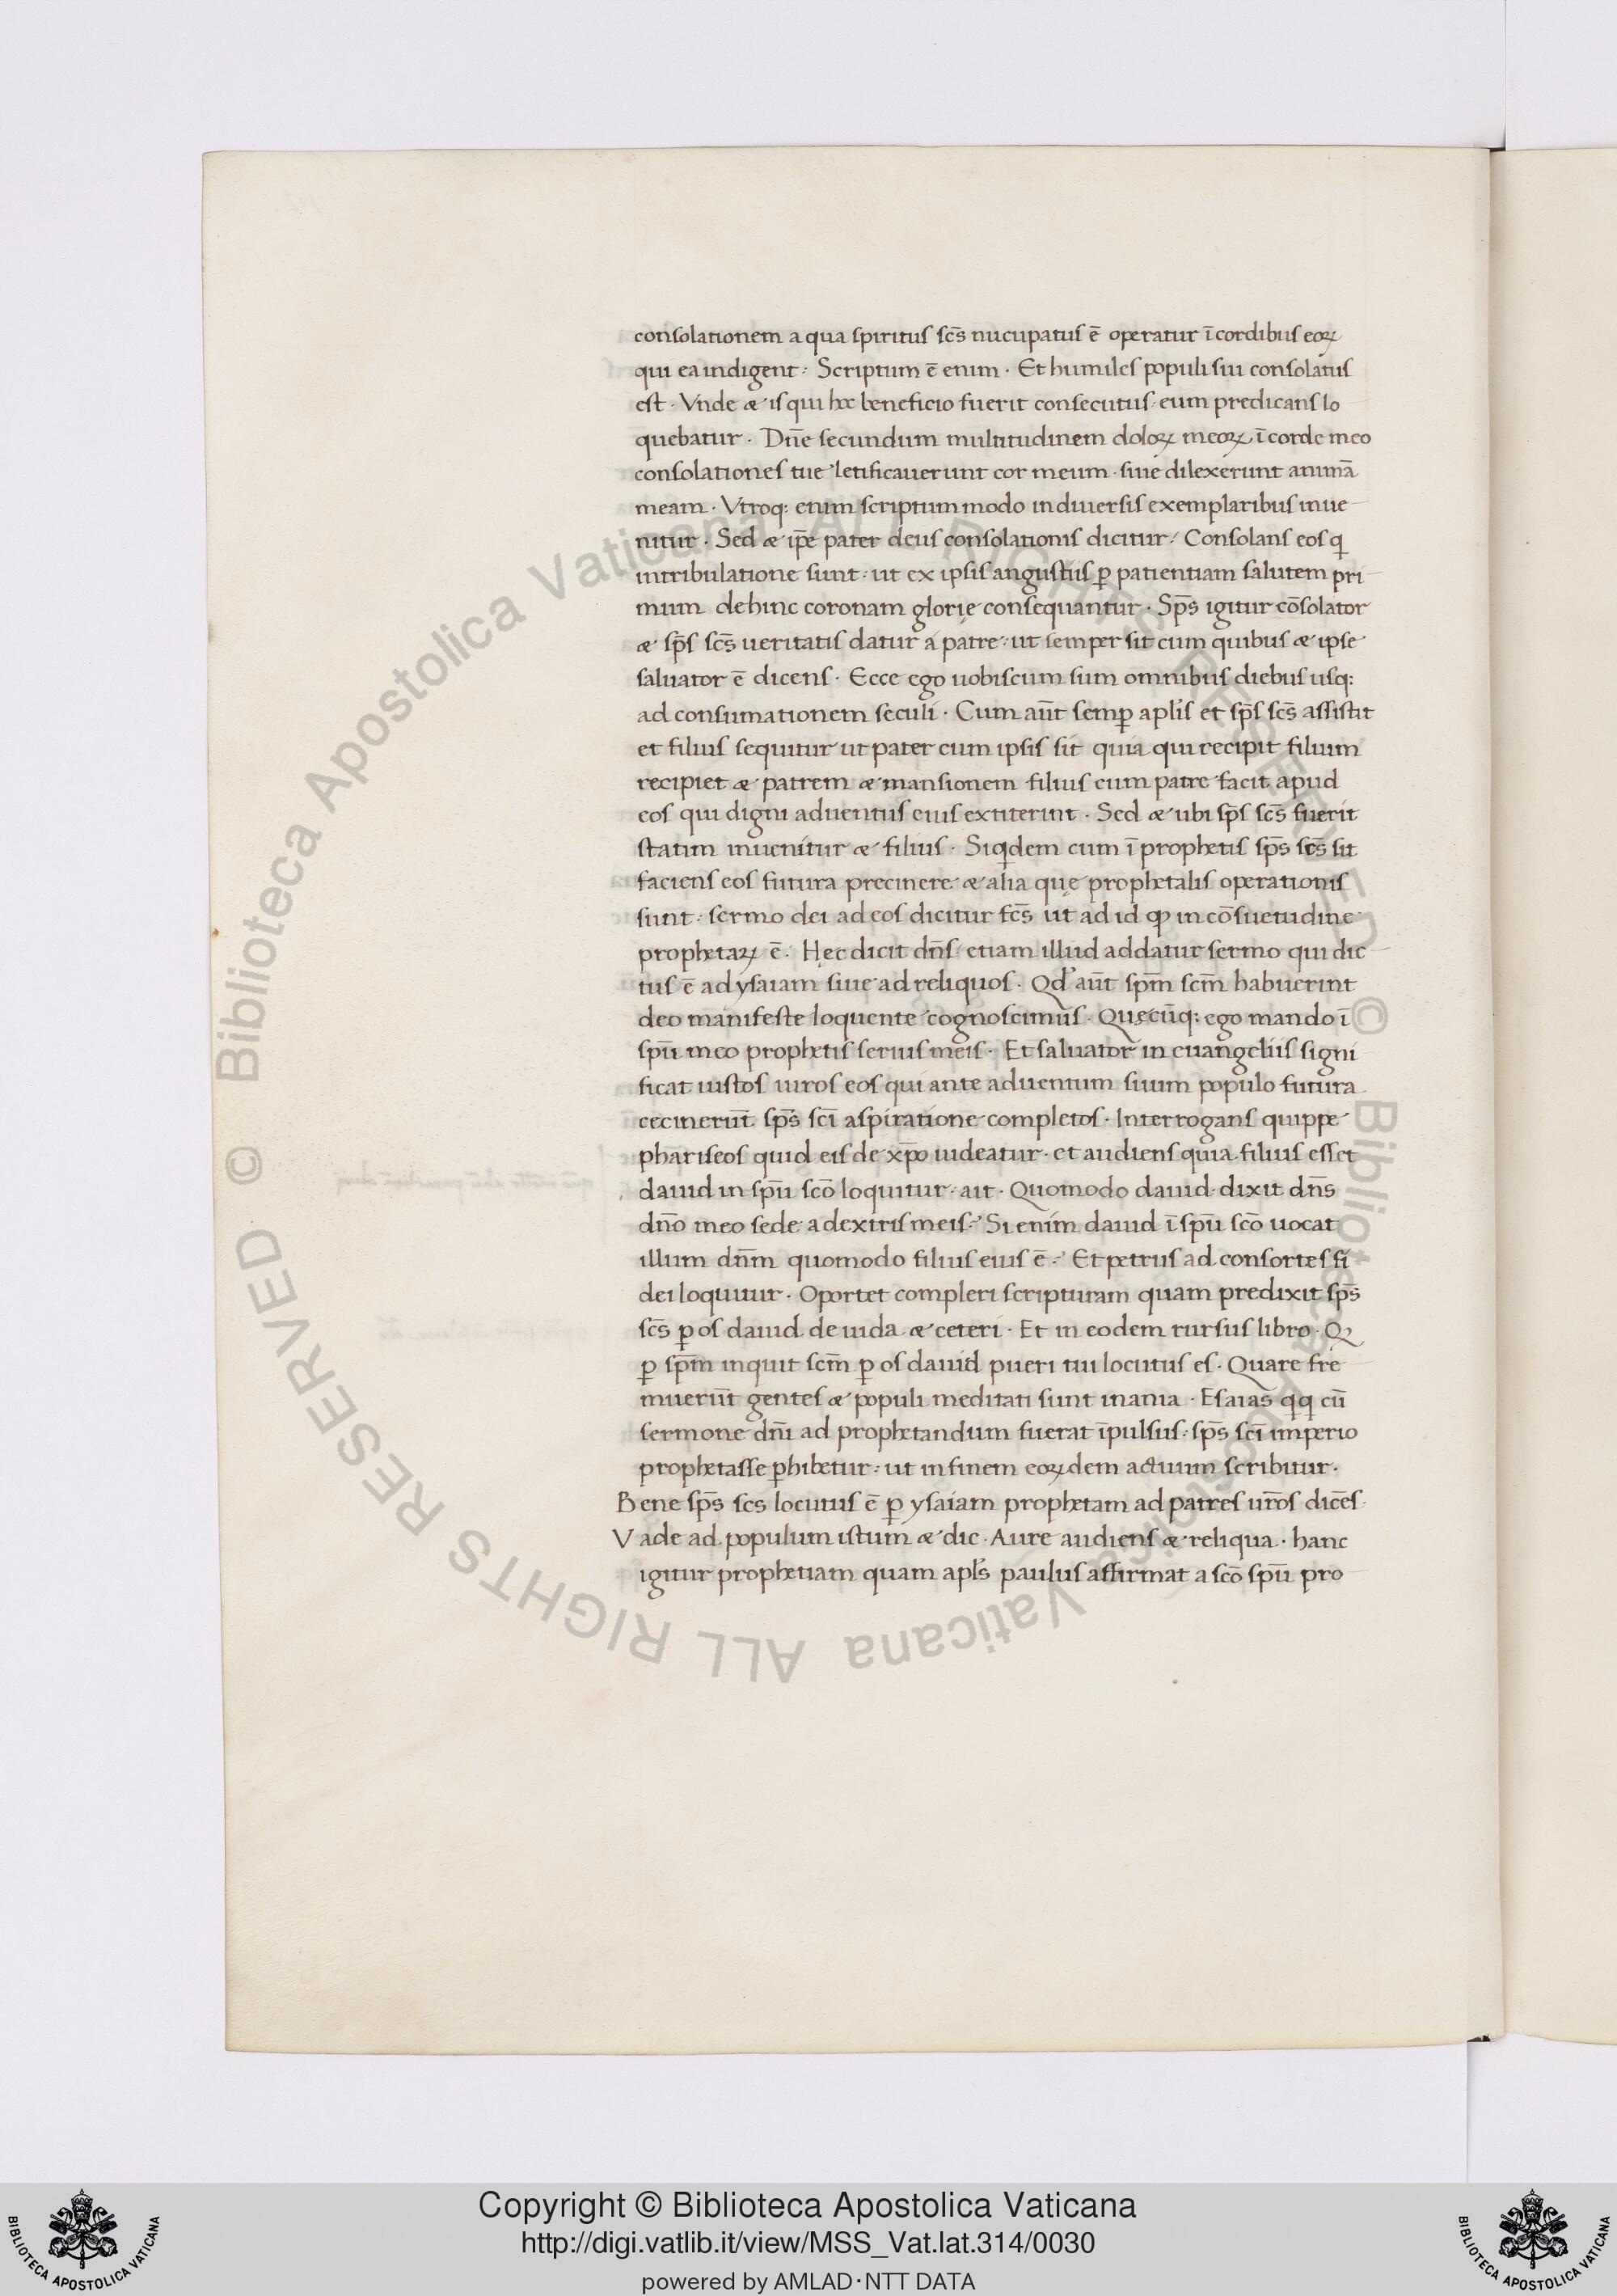 consolationem a qua spiritus sc̄s nucupatus ē operatur ī cordibus eoꝝ
qui ea indigent: Scriptum ē enim · Et humiles populi sui consolatus
est · Vnde æ is qui hoc beneficio fuerit consecutus: eum predicans lo
quebatur · Dn̄e secundum multitudinem doloꝝ meoꝝ, ī corde meo
consolationes tue letificauerunt cor meum · siue dilexerunt animā
meam · Vtroq: enim scriptum modo in diuersis exemplaribus inue
nitur · Sed æ ip̄e pater deus consolationis dicitur: Consolans eos q
in tribulatione sunt: ut ex ipsis angustiis ꝑ patientiam salutem pri
mum dehinc coronam glorię consequantur · Sp̄s igitur cōsolator
æ sp̄s sc̄s ueritatis datur a patre: ut semper sit cum quibus æ ipse
saluator ē dicens · Ecce ego uobiscum sum omnibus diebus usq:
ad consumationem seculi · Cum aūt semꝑ apl̄is et sp̄s sc̄s assistit
et filius sequitur ut pater cum ipsis sit quia qui recipit filium
recipiet æ patrem æ mansionem filius cum patre facit apud
eos qui digni aduentus eius extiterint · Sed æ ubi sp̄s sc̄s fuerit
statim inuenitur æ filius · Siqdem cum ī prophetis sp̄s sc̄s sit
faciens eos futura precinere æ alia quę prophetalis operationis
sunt: sermo dei ad eos dicitur fc̄s ut ad id ꝙ in cōsuetudine
prophetaꝝ ē · Hęc dicit dn̄s etiam illud addatur sermo qui dic
tus ē ad ysaiam siue ad reliquos · Qd aūt sp̄m scm̄ habuerint
deo manifeste loquente cognoscimus · Quęcūq: ego mando ī
spū meo prophetis seruis meis · Et saluator in euangeliis signi
ficat iustos uiros eos qui ante aduentum suum populo futura
cecinerūt sp̄s sc̄i aspiratione completos · Interrogans quippe
phariseos quid eis de xp̄o uideatur · et audiens quia filius esset
dauid in spū scō loquitur · ait · Quomodo dauid · dixit dn̄s
dn̄o meo sede a dextris meis: Si enim dauid ī spū scō uocat
illum dn̄m quomodo filius eius ē: Et petrus ad consortes fi
dei loquitur · Oportet compleri scripturam quam predixit sp̄s
sc̄s ꝑ os dauid de iuda æ ceteri · Et in eodem rursus libro · Q
ꝑ sp̄m inquit scm̄ ꝑ os dauid pueri tui locutus es · Quare fre
muerūt gentes æ populi meditati sunt inania · Esaias qq cū
sermone dn̄i ad prophetandum fuerat īpulsus: sp̄s sc̄i imperio
prophetasse ꝑhibetur: ut in finem eoꝝdem actuum scribitur ·
Bene sp̄s scs locutus ē ꝑ ysaiam prophetam ad patres ur̄os dicēs
Vade ad populum istum æ dic · Aure audiens æ reliqua · hanc
igitur prophetiam quam apl̄s paulus affirmat a scō spū pro
Copyright © Biblioteca Apostolica Vaticana
http://digi.vatlib.it/view/MSS_Vat.lat.314/0030
powered by AMLAD·NTT DATA
© Biblioteca Apostolica Vaticana ALL RIGHTS RESERVED
© Biblioteca Apostolica Vaticana ALL RIGHTS RESERVED
BIBLIOTECA APOSTOLICA VATICANA
BIBLIOTECA APOSTOLICA VATICANA